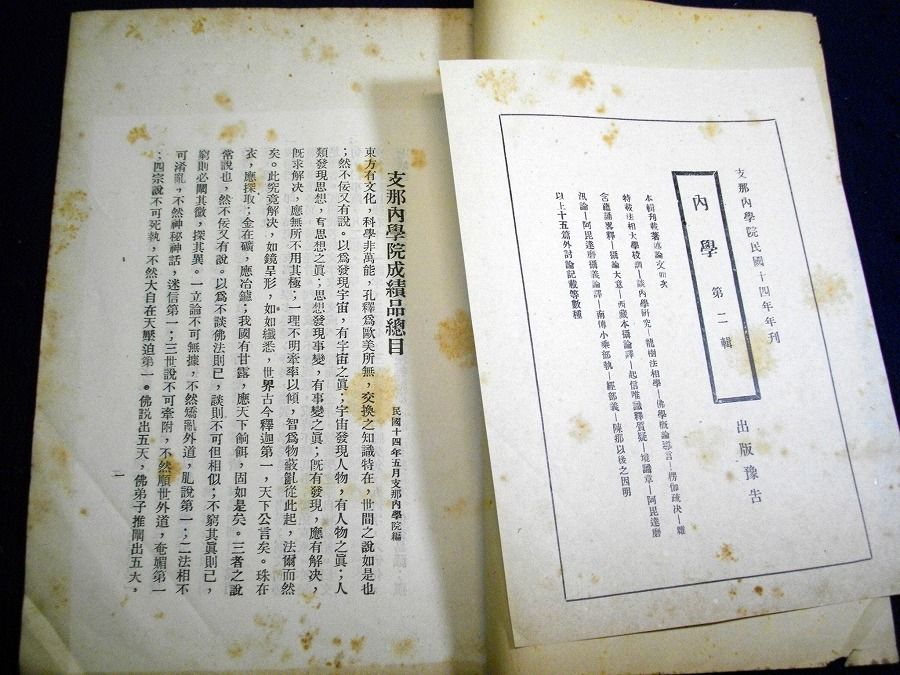 支那內學院民國十四年年刊
內學 第二輯
出版豫告
本輯刊載著述論文如次
特載法相大學校訓—談內學研究—龍樹法相學—佛學概論導言—楞伽疏决—雜
含蘊誦略釋—攝論大意—西藏本攝論譯—起信唯識釋質疑—境識章—阿毘達磨
汎論—阿毘達磨攝義論譯—南傳小乘部執—經部義—陳那以後之因明
以上十五篇外討論記載等數種
支那內學院成績品總目
民國十四年五月支那內學院編
東方有文化，科學非萬能，孔釋爲歐美所無，交換之知識特在，世間之說如是也
；然不佞又有說。以爲發現宇宙，有宇宙之眞；宇宙發現人物，有人物之眞；人
類發現思想，有思想之眞；思想發現事變，有事變之眞；旣有發現，應有解决，
旣求解决，應無所不用其極；一理不明牽率以傾，智爲物蔽亂從此起，法爾而然
矣。此究竟解决，如鏡呈形，如如纖悉，世界古今釋迦第一，天下公言矣。珠在
衣，應探取；金在礦，應冶鑪；我國有甘露，應天下餉餌，固如是矣。三者之說
常說也，然不佞又有說。以爲不談佛法則已，談則不可但相似；不窮其眞則已，
窮則必闡其微，探其異。一立論不可無據，不然矯亂外道，肊說第一；二法相不
可淆亂，不然神秘神話，迷信第一；三世說不可牽附，不然順世外道，奄媚第一
；四宗說不可死執，不然大自在天壓迫第一。佛說出五天，佛弟子推闡出五大，
一